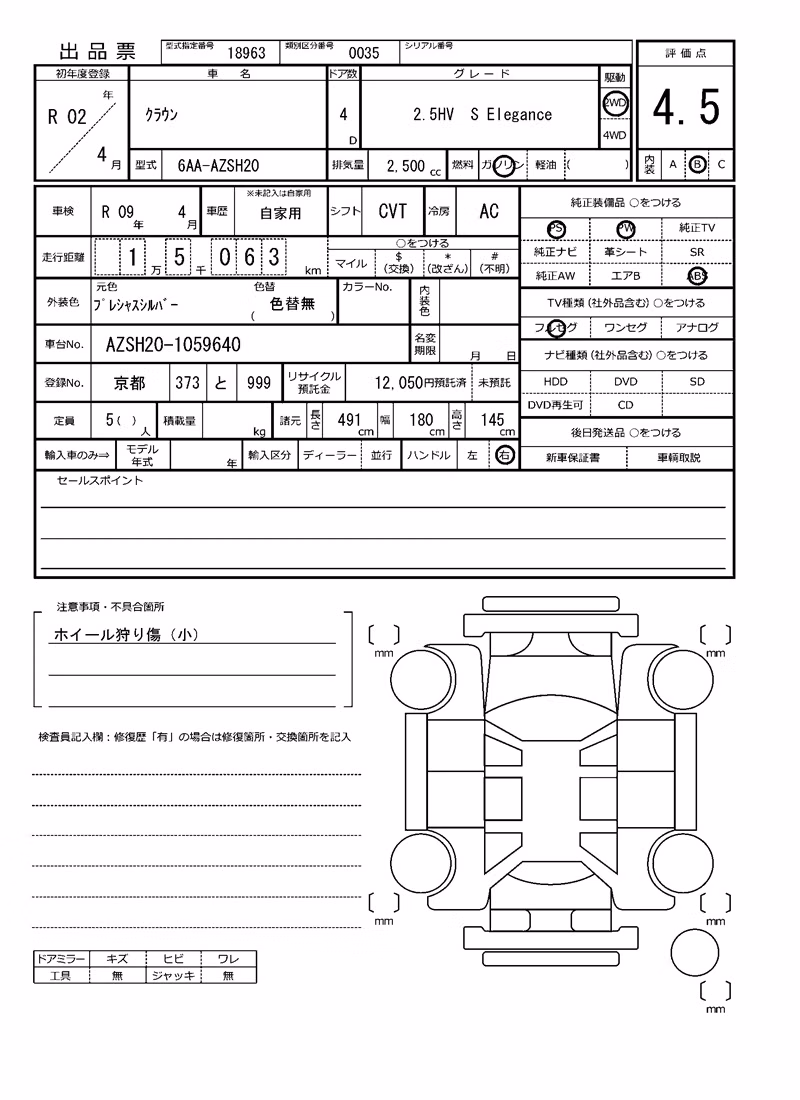 出品票 型式指定番号 18963 類別区分番号 0035 シリアル番号
評価点
初年度登録 車名 ドア数 グレード 駆動
R 02 年 4 月
クラウン
4 D
2.5HV S Elegance
2WD
4WD
4.5
型式 6AA-AZSH20 排気量 2,500 cc 燃料 ガソリン 軽油 ( )
内装 A B C
車検 R 09 年 4 月 車歴 ※未記入は自家用 自家用 シフト CVT 冷房 AC
走行距離 1 万 5 千 0 6 3 km
○をつける
マイル $ (交換) * (改ざん) # (不明)
外装色 元色 プレシャスシルバー 色替 色替無 ( ) カラーNo. 内装色
車台No. AZSH20-1059640 名変期限 月 日
登録No. 京都 373 と 999 リサイクル預託金 12,050円預託済 未預託
定員 5( ) 人 積載量 kg 諸元 長さ 491 cm 幅 180 cm 高さ 145 cm
輸入車のみ⇒ モデル年式 年 輸入区分 ディーラー 並行 ハンドル 左 右
純正装備品 ○をつける
PS PW 純正TV
純正ナビ 革シート SR
純正AW エアB ABS
TV種類(社外品含む)○をつける
フルセグ ワンセグ アナログ
ナビ種類(社外品含む)○をつける
HDD DVD SD
DVD再生可 CD
後日発送品 ○をつける
新車保証書 車輌取説
セールスポイント
注意事項・不具合箇所
ホイール狩り傷(小)
検査員記入欄:修復歴「有」の場合は修復箇所・交換箇所を記入
mm mm
mm mm
mm
ドアミラー キズ ヒビ ワレ
工具 無 ジャッキ 無